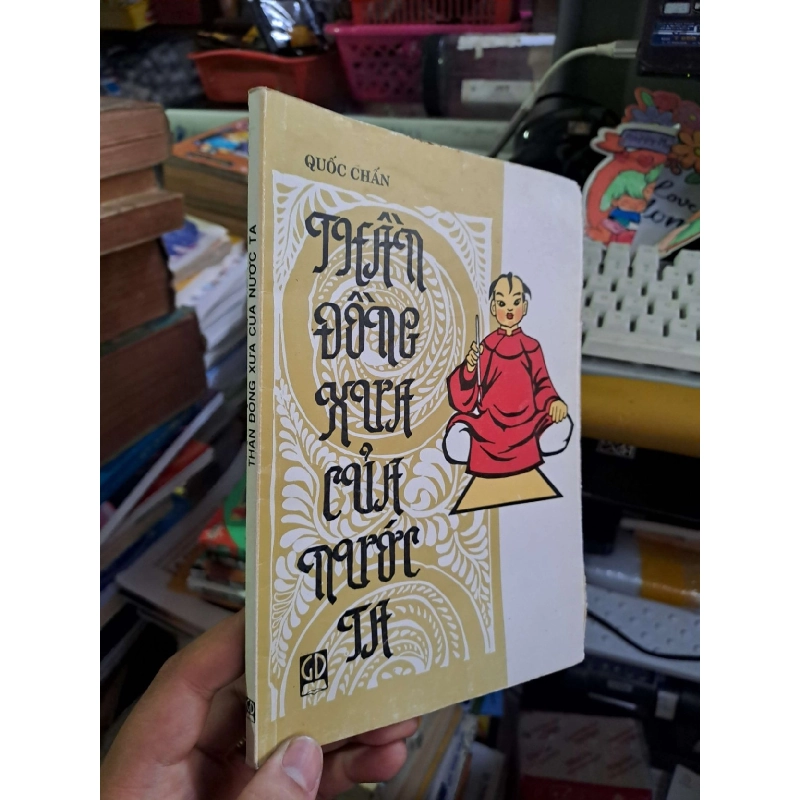 QUỐC CHẤN
THẦN
ĐỒNG
XƯA
CỦA
NƯỚC
TA
GD
THẦN ĐỒNG XƯA CỦA NƯỚC TA
love